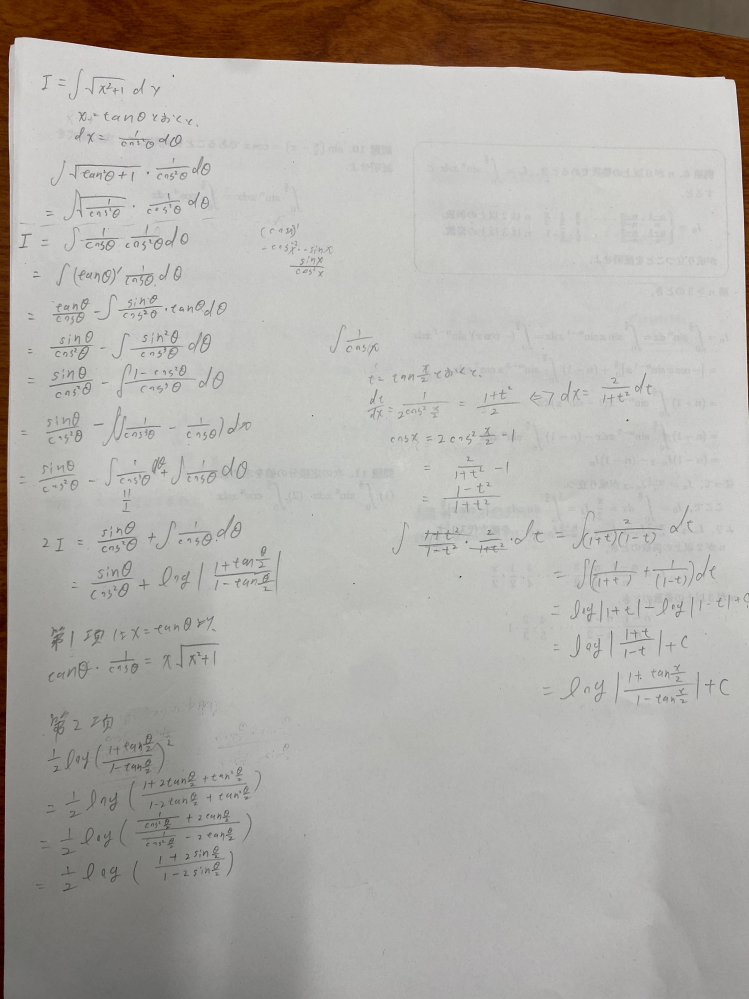 I = ∫ √(x²+1) dx
x = tanθ とおくと、
dx = 1/cos²θ dθ
∫ √(tan²θ+1) · 1/cos²θ dθ
= ∫ √(1/cos²θ) · 1/cos²θ dθ
I = ∫ 1/cosθ · 1/cos²θ dθ
= ∫ (tanθ)' 1/cosθ dθ
= tanθ/cosθ - ∫ sinθ/cos²θ · tanθ dθ
= sinθ/cos²θ - ∫ sin²θ/cos³θ dθ
= sinθ/cos²θ - ∫ (1-cos²θ)/cos³θ dθ
= sinθ/cos²θ - ∫ (1/cos³θ - 1/cosθ) dθ
= sinθ/cos²θ - ∫ 1/cos³θ dθ + ∫ 1/cosθ dθ
||
I
2I = sinθ/cos²θ + ∫ 1/cosθ dθ
= sinθ/cos²θ + log | (1+tan θ/2)/(1-tan θ/2) |
第1項は x = tanθ より
tanθ · 1/cosθ = x √(x²+1)
第2項
1/2 log ( (1+tan θ/2)/(1-tan θ/2) )²
= 1/2 log ( (1+2tan θ/2 + tan² θ/2)/(1-2tan θ/2 + tan² θ/2) )
= 1/2 log ( (1/cos² θ/2 + 2tan θ/2)/(1/cos² θ/2 - 2tan θ/2) )
= 1/2 log ( (1+2sin θ/2)/(1-2sin θ/2) )
(cosx)⁻¹
-cosx⁻² · -sinx
sinx/cos²x
∫ 1/cosx
t = tan x/2 とおくと、
dt/dx = 1/(2cos² x/2) = (1+t²)/2 ⇔ dx = 2/(1+t²) dt
cosx = 2cos² x/2 - 1
= 2/(1+t²) - 1
= (1-t²)/(1+t²)
∫ (1+t²)/(1-t²) · 2/(1+t²) · dt = ∫ 2/((1+t)(1-t)) dt
= ∫ (1/(1+t) + 1/(1-t)) dt
= log|1+t| - log|1-t| + C
= log | (1+t)/(1-t) | + C
= log | (1+tan x/2)/(1-tan x/2) | + C